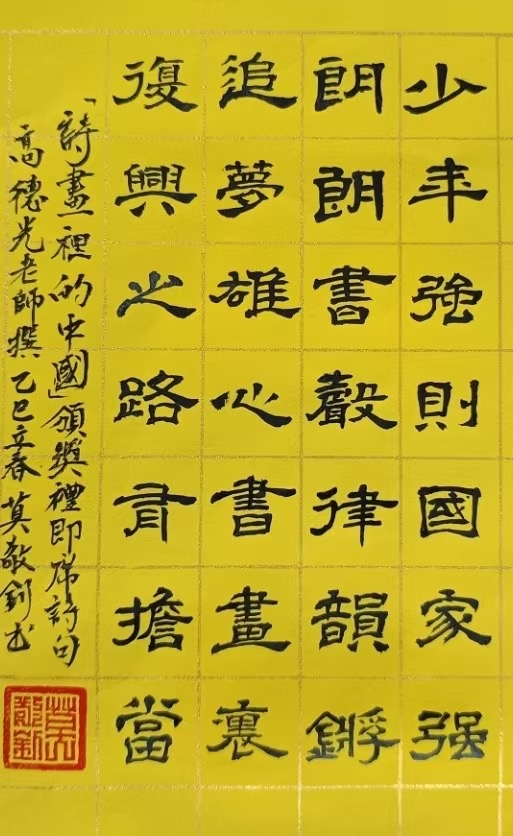 少年強則國家强
朗朗書聲律韻鏘
追夢雄心書畫裏
復興之路肩擔當
「詩畫裡的中國」頒獎禮即席詩句
高德光老師撰 乙巳立春 莫敬釗書